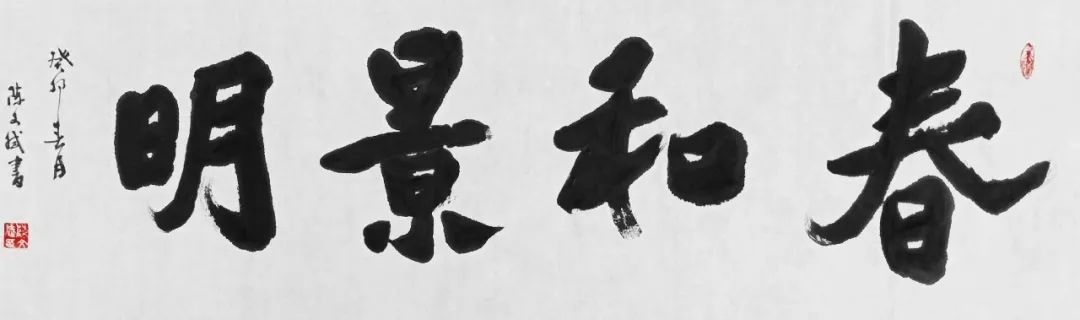 春和景明
癸卯春月
陈文斌書